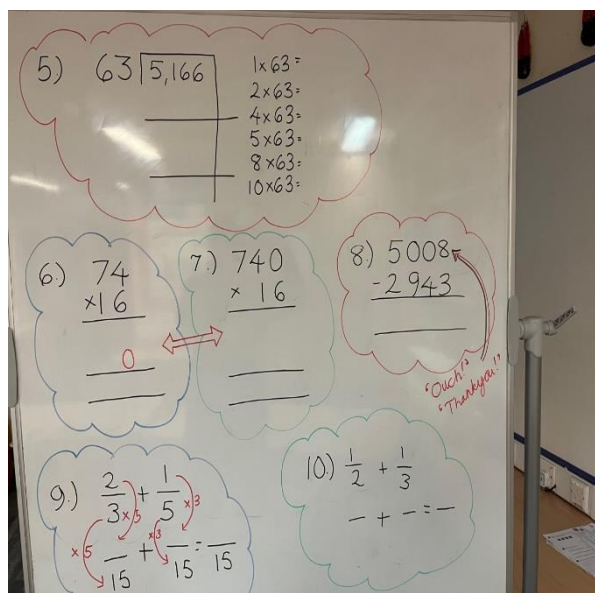 5.) 63 5,166
1x63=
2x63=
4x63=
5x63=
8x63=
10x63=
6.) 74
x16
0
7.) 740
x 16
8.) 5008
-2943
"Ouch!"
"Thankyou!"
9.) 2/3 + 1/5
x5 x3
x5 x3
/15 + /15 = /15
10.) 1/2 + 1/3
– + – = –